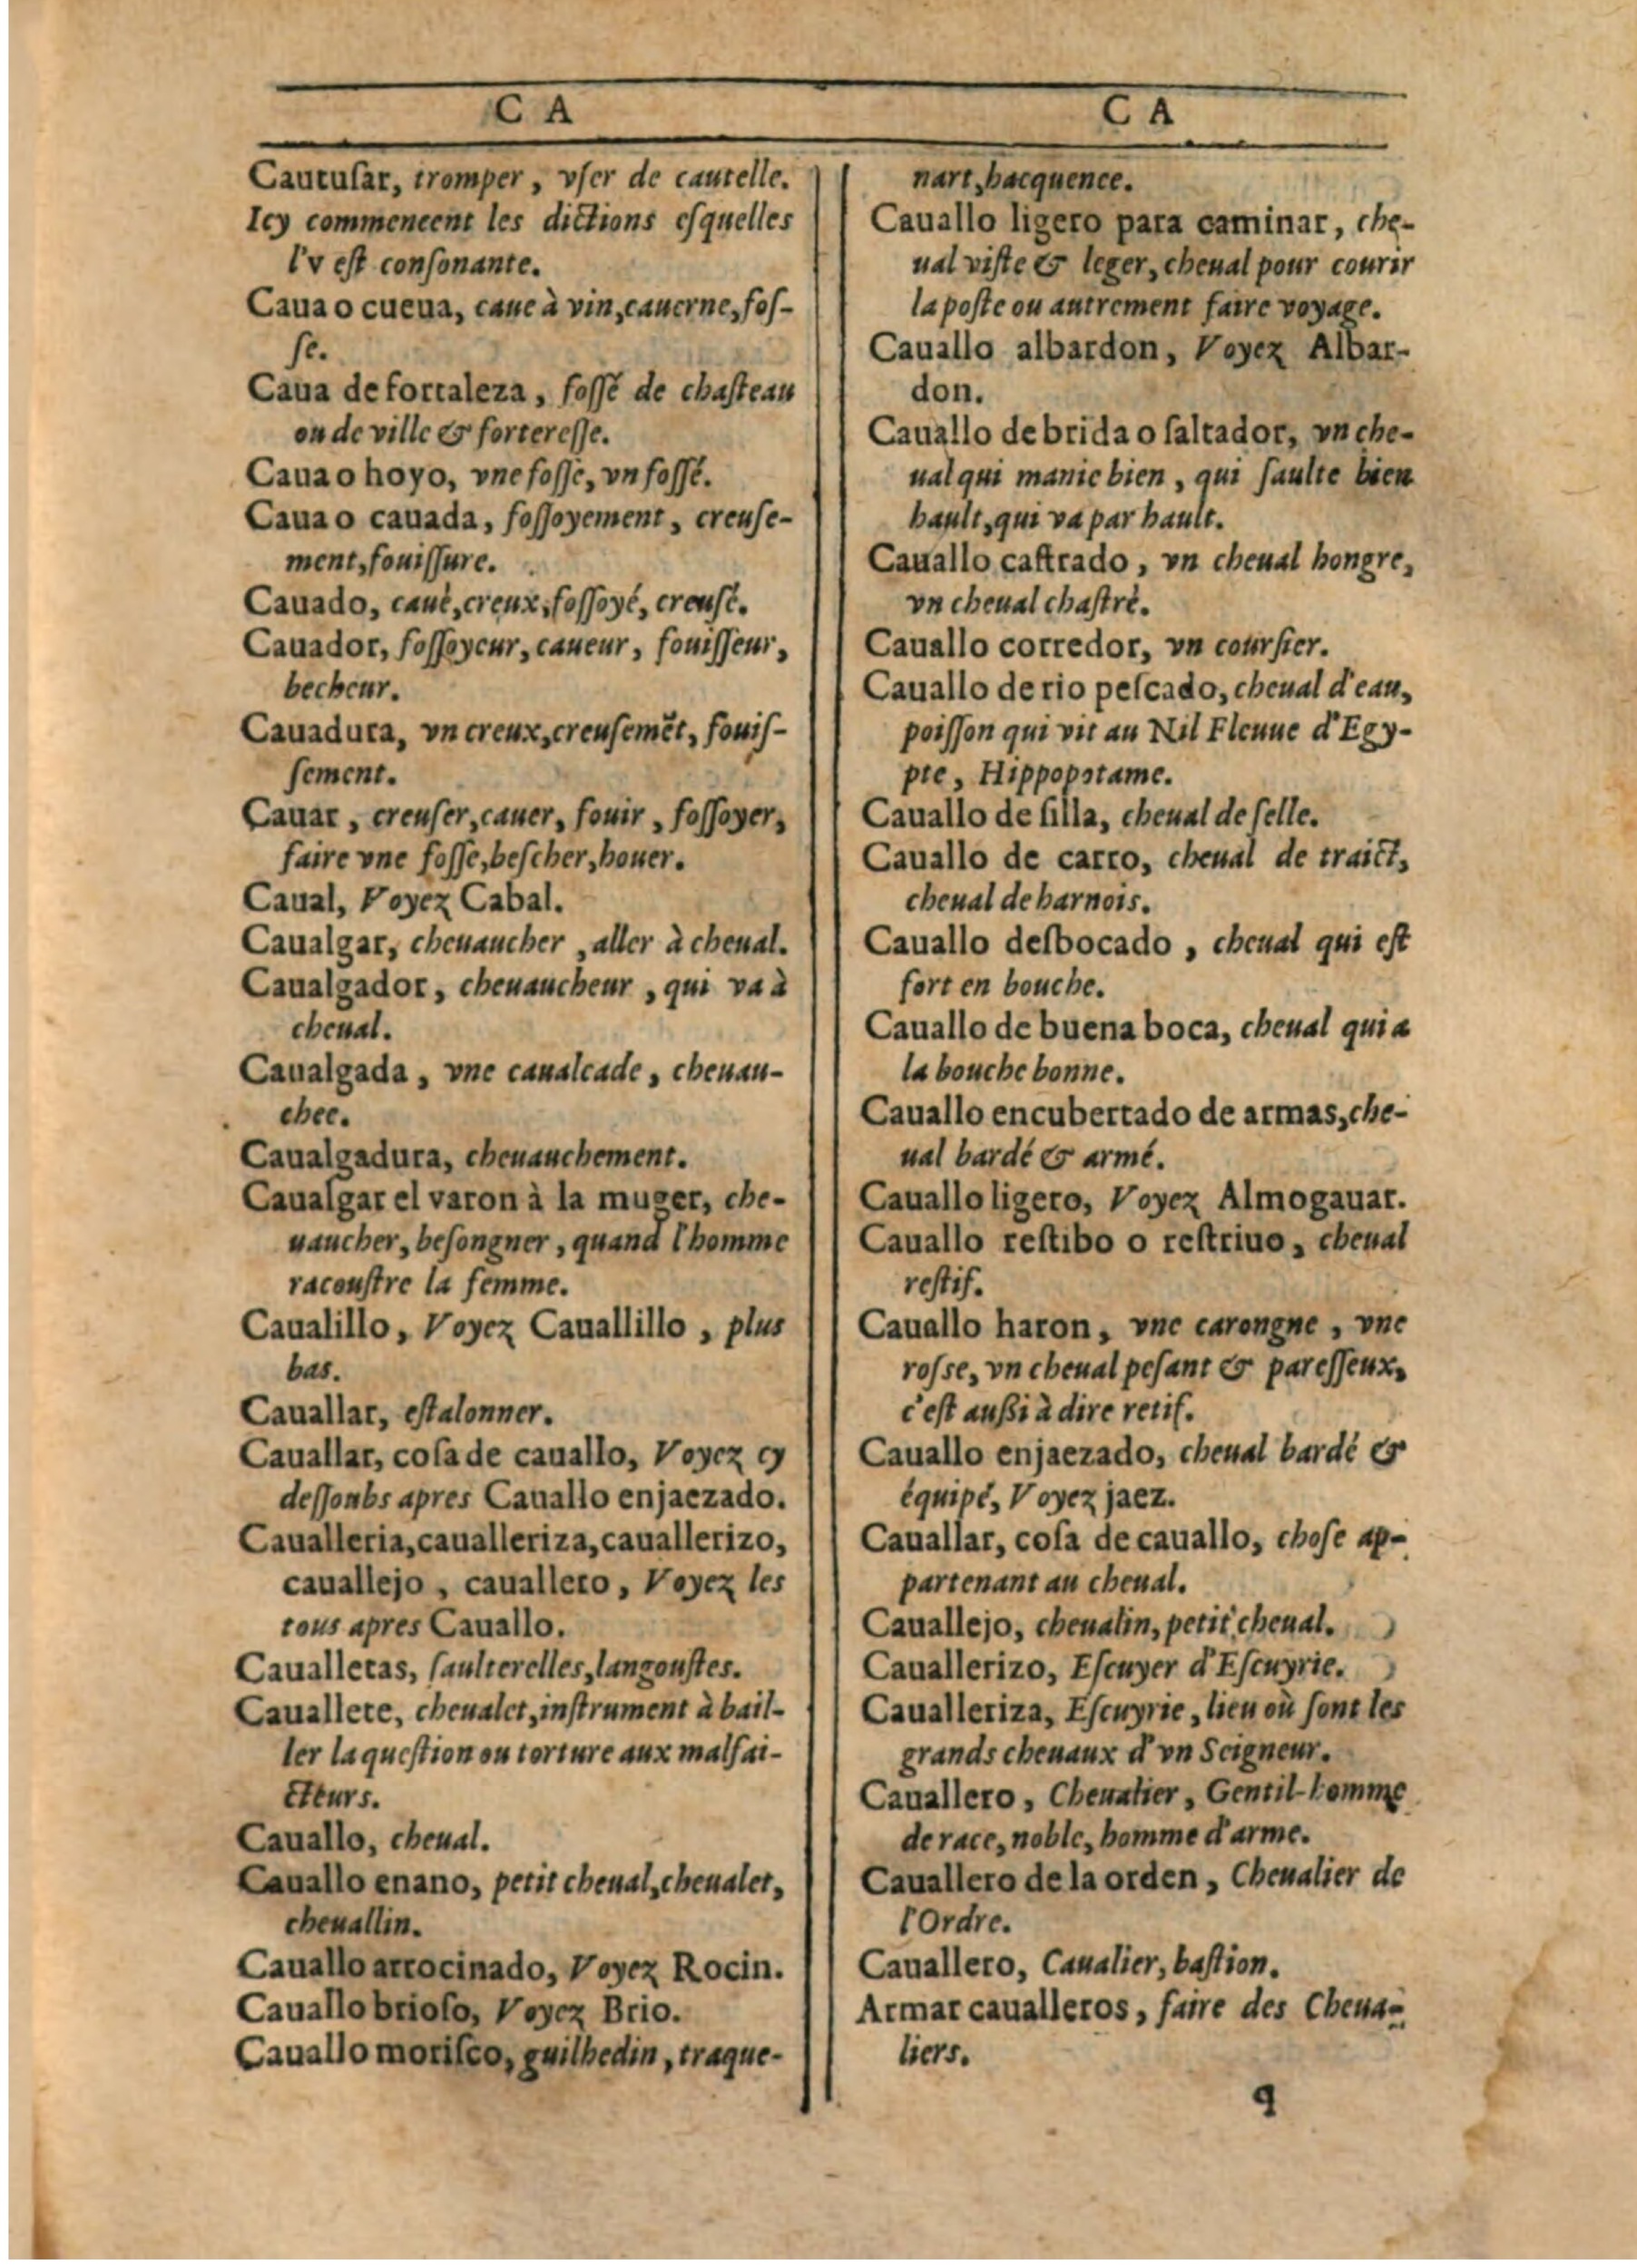 C A
Cautuſar, tromper, vſer de cautelle.
Icy commencent les dictions eſquelles
l'v eſt conſonante.
Caua o cueua, caue à vin, cauerne, foſ-
ſe.
Caua de fortaleza, foſſé de chaſteau
ou de ville & forтereſſe.
Caua o hoyo, vne foſſe, vn foſſé.
Caua o cauada, foſſoyement, creuſe-
ment, fouiſſure.
Cauado, caué, creux, foſſoyé, creuſé.
Cauador, foſſoyeur, caueur, fouiſſeur,
becheur.
Cauadura, vn creux, creuſemẽt, fouiſ-
ſement.
Cauar, creuſer, cauer, fouir, foſſoyer,
faire vne foſſe, beſcher, houer.
Caual, Voyez Cabal.
Caualgar, cheuaucher, aller à cheual.
Caualgador, cheuaucheur, qui va à
cheual.
Caualgada, vne caualcade, cheuau-
chee.
Caualgadura, cheuauchement.
Caualgar el varon à la muger, che-
uaucher, beſongner, quand l'homme
racouſtre la femme.
Caualillo, Voyez Cauallillo, plus
bas.
Cauallar, eſtalonner.
Cauallar, coſa de cauallo, Voyez cy
deſſoubs apres Cauallo enjaezado.
Caualleria, caualleriza, cauallerizo,
cauallejo, cauallero, Voyez les
tous apres Cauallo.
Caualletas, ſaulterelles, langouſtes.
Cauallete, cheualet, inſtrument à bail-
ler la queſtion ou torture aux malfai-
cteurs.
Cauallo, cheual.
Cauallo enano, petit cheual, cheualet,
cheuallin.
Cauallo arrocinado, Voyez Rocin.
Cauallo brioſo, Voyez Brio.
Cauallo moriſco, guilhedin, traque-
C A
nart, hacquence.
Cauallo ligero para caminar, che-
ual viſte & leger, cheual pour courir
la poſte ou autrement faire voyage.
Cauallo albardon, Voyez Albar-
don.
Cauallo de brida o ſaltador, vn che-
ual qui manie bien, qui ſaulte bien
hault, qui va par hault.
Cauallo caſtrado, vn cheual hongre,
vn cheual chaſtré.
Cauallo corredor, vn courſier.
Cauallo de rio peſcado, cheual d'eau,
poiſſon qui vit au Nil Fleuue d'Egy-
pte, Hippopotame.
Cauallo de ſilla, cheual de ſelle.
Cauallo de carro, cheual de traict,
cheual de harnois.
Cauallo deſbocado, cheual qui eſt
fort en bouche.
Cauallo de buena boca, cheual qui a
la bouche bonne.
Cauallo encubertado de armas, che-
ual bardé & armé.
Cauallo ligero, Voyez Almogauar.
Cauallo reſtibo o reſtriuo, cheual
reſtif.
Cauallo haron, vne carongne, vne
roſſe, vn cheual peſant & pareſſeux,
c'eſt auſſi à dire retif.
Cauallo enjaezado, cheual bardé &
équipé, Voyez jaez.
Cauallar, coſa de cauallo, choſe ap-
partenant au cheual.
Cauallejo, cheualin, petit cheual.
Cauallerizo, Eſcuyer d'Eſcuyrie.
Caualleriza, Eſcuyrie, lieu où ſont les
grands cheuaux d'vn Seigneur.
Cauallero, Cheualier, Gentil-homme
de race, noble, homme d'arme.
Cauallero de la orden, Cheualier de
l'Ordre.
Cauallero, Caualier, baſtion.
Armar caualleros, faire des Cheua-
liers.
q